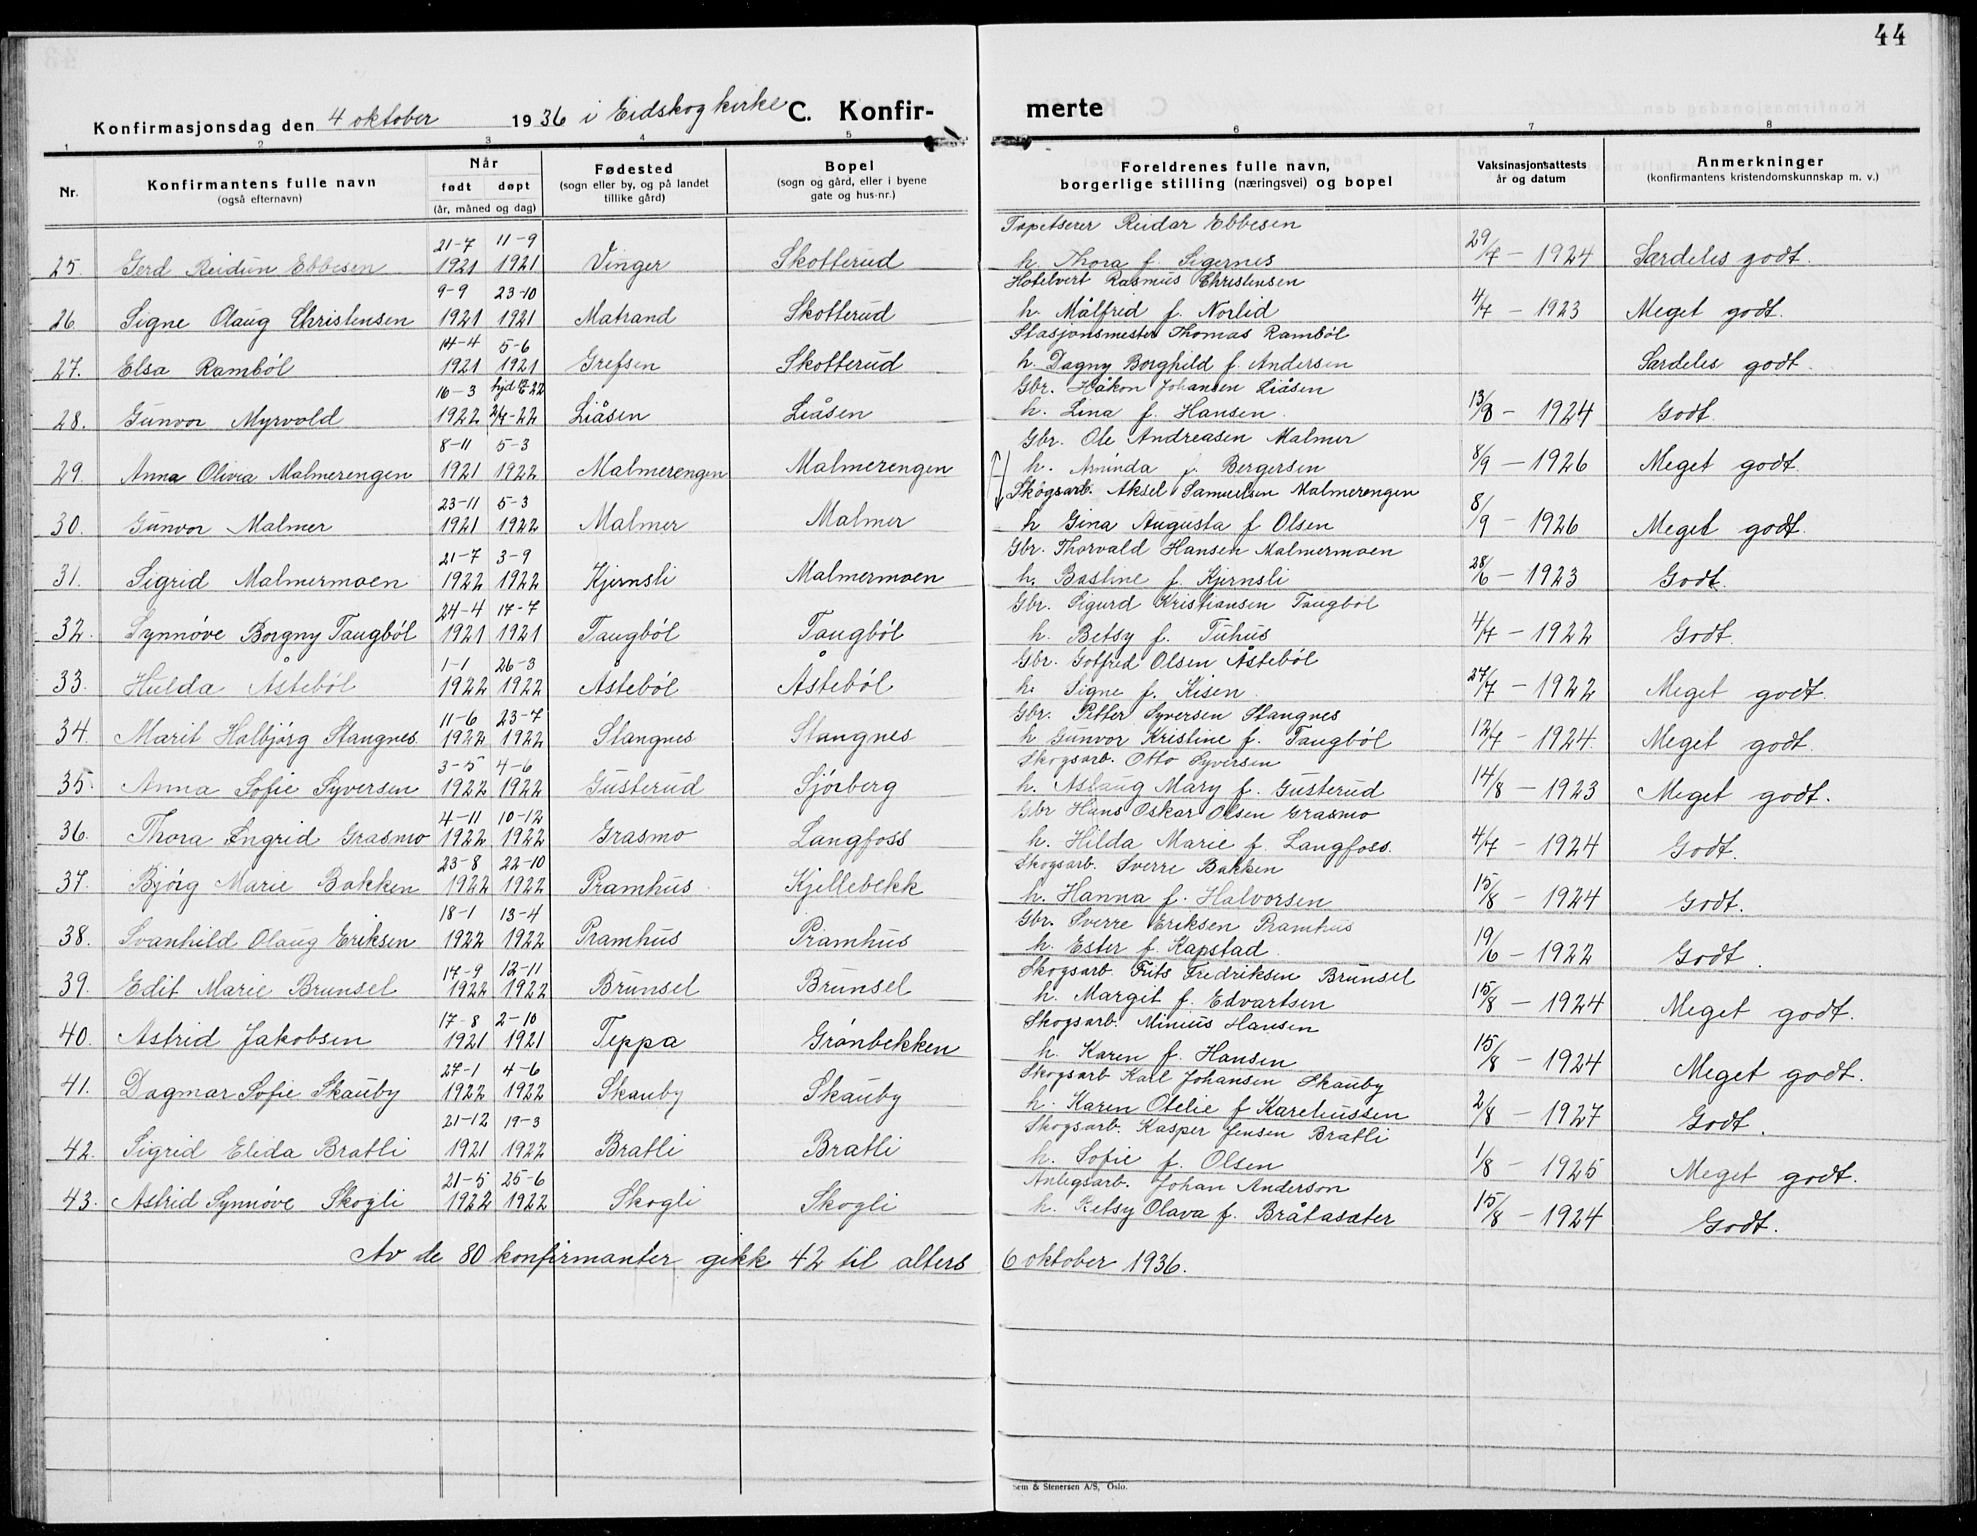 44
Konfirmasjonsdag den 4 oktober 1936 i Eidskog kirke C. Konfir- merte
1 2 3 4 5 6 7 8
Nr. Konfirmantens fulle navn (også efternavn) Når født døpt (år, måned og dag) Fødested (sogn eller by, og på landet tillike gård) Bopel (sogn og gård, eller i byene gate og hus-nr.) Foreldrenes fulle navn, borgerlige stilling (næringsvei) og bopel Vaksinasjonsattests år og datum Anmerkninger (konfirmantens kristendomskunnskap m. v.)
21-7 11-9 Tapetserer Reidar Ebbesen
25. Gerd Reidun Ebbesen 1921 1921 Vinger Skotterud h. Thora f. Sigernes 29/7 - 1924 Særdeles godt.
9-9 23-10 Hotelvert Rasmus Christensen
26 Signe Olaug Christensen 1921 1921 Matrand Skotterud h. Målfrid f. Norlid 4/7 - 1923 Meget godt.
14-4 5-6 Stasjonsmester Thomas Rambøl
27. Elsa Rambøl 1921 1921 Grefsen Skotterud h. Dagny Borghild f. Andersen Særdeles godt.
16-3 hjd -22 Gbr. Håkon Johansen Liåsen
28. Gunvor Myrvold 1922 2/7-22 Liåsen Liåsen h. Lina f. Hansen. 13/8 - 1924 Godt.
8-11 5-3 Gbr. Ole Andreasen Malmer
29. Anna Olivia Malmerengen 1921 1922 Malmerengen Malmerengen h. Aminda f. Bergersen 8/9 - 1926 Meget godt.
23-11 5-3 Skogsarb. Aksel Samuelsen Malmerengen
30. Gunvor Malmer 1921 1922 Malmer Malmer h Gina Augusta f Olsen 8/9 - 1926 Meget godt.
21-7 3-9 Gbr. Thorvald Hansen Malmermoen
31. Sigrid Malmermoen 1922 1922 Kjernsli Malmermoen h. Bastine f. Kjernsli 28/6 - 1923 Godt.
24-4 17-7 Gbr. Sigurd Kristiansen Taugbøl
32. Synnøve Borgny Taugbøl 1921 1921 Taugbøl Taugbøl h. Betsy f. Tuhus 4/7 - 1922 Godt.
1-1 26-3 Gbr. Gotfred Olsen Åstebøl
33. Hulda Åstebøl 1922 1922 Åstebøl Åstebøl h. Signe f. Kisen. 27/7 - 1922 Meget godt.
11-6 23-7 Gbr. Petter Syversen Stangnes
34. Marit Halbjørg Stangnes. 1922 1922 Stangnes Stangnes h Gunvor Kristine f. Taugbøl 12/7 - 1924. Meget godt.
3-5 4-6 Skogsarb. Otto Syversen
35. Anna Sofie Syversen 1922 1922 Gusterud Sjørberg h. Aslaug Mary f. Gusterud 14/8 - 1923 Meget godt.
4-11 10-12 Gbr Hans Oskar Olsen Grasmo
36. Thora Ingrid Grasmo 1922 1922 Grasmo Langfoss h. Hilda Marie f. Langfoss. 4/7 - 1924 Godt.
23-8 22-10 Skogsarb. Sverre Bakken
37. Bjørg Marie Bakken 1922 1922 Pramhus Kjellebekk h. Hanna f. Halvorsen 15/8 - 1924 Godt.
18-1 13-4 Gbr. Sverre Eriksen Pramhus
38. Svanhild Olaug Eriksen 1922 1922 Pramhus Pramhus h. Ester f. Kapstad. 19/6 - 1922 Godt.
17-9 12-11 Skogsarb. Frits Fredriksen Brunsel
39. Edit Marie Brunsel 1922 1922 Brunsel Brunsel h. Margit f. Edvartsen 15/8 - 1924 Meget godt.
17-8 2-10 Skogsarb. Minius Hansen
40. Astrid Jakobsen 1921 1921 Teppa Grønbekken h. Karen f. Hansen 15/8 - 1924 Meget godt.
27-1 4-6 Skogsarb Karl Johansen Skauby
41. Dagmar Sofie Skauby 1922 1922 Skauby Skauby h. Karen Otelie f Kareliussen 2/8 - 1927 Godt.
21-12 19-3 Skogsarb. Kasper Jensen Bratli
42. Sigrid Elida Bratli 1921 1922 Bratli Bratli h. Sofie f. Olsen 1/8 - 1925 Meget godt.
21-5 25-6 Anlegsarb. Johan Anderson
43. Astrid Synnøve Skogli 1922 1922 Skogli Skogli h. Betsy Olava f. Bråtasæter 15/8 - 1924 Godt.
Av de 80 konfirmanter gikk 42 til alters 6 oktober 1936.
Sem & Stenersen A/S, Oslo.